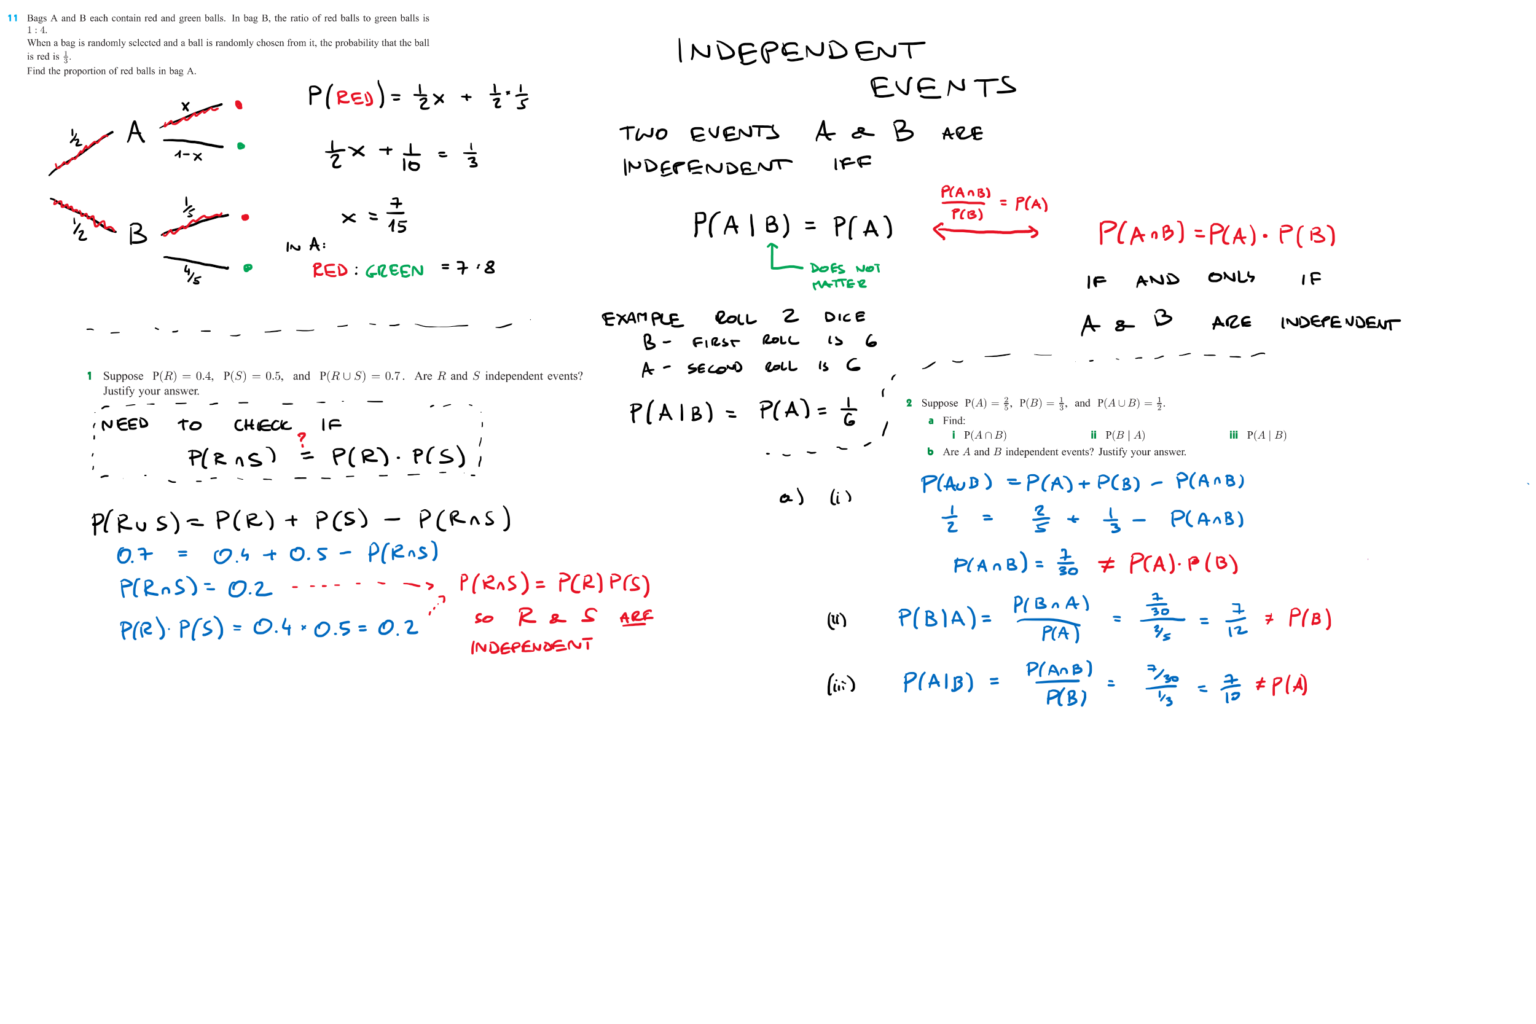 11 Bags A and B each contain red and green balls. In bag B, the ratio of red balls to green balls is
1 : 4.
When a bag is randomly selected and a ball is randomly chosen from it, the probability that the ball
is red is 1/3.
Find the proportion of red balls in bag A.
1/2 A x
1-x
1/2 B 1/5
4/5
P(RED) = 1/2 x + 1/2 · 1/5
1/2 x + 1/10 = 1/3
x = 7/15
IN A:
RED : GREEN = 7 : 8
1 Suppose P(R) = 0.4, P(S) = 0.5, and P(R ∪ S) = 0.7. Are R and S independent events?
Justify your answer.
NEED TO CHECK IF
P(R∩S) ?= P(R) · P(S)
P(R∪S) = P(R) + P(S) − P(R∩S)
0.7 = 0.4 + 0.5 − P(R∩S)
P(R∩S) = 0.2
P(R) · P(S) = 0.4 · 0.5 = 0.2
P(R∩S) = P(R) P(S)
SO R & S ARE
INDEPENDENT
INDEPENDENT
EVENTS
TWO EVENTS A & B ARE
INDEPENDENT IFF
P(A | B) = P(A)
DOES NOT
MATTER
P(A∩B)/P(B) = P(A)
P(A∩B) = P(A) · P(B)
IF AND ONLY IF
A & B ARE INDEPENDENT
EXAMPLE ROLL 2 DICE
B - FIRST ROLL IS 6
A - SECOND ROLL IS 6
P(A|B) = P(A) = 1/6
2 Suppose P(A) = 2/5, P(B) = 1/3, and P(A ∪ B) = 1/2.
a Find:
i P(A ∩ B) ii P(B | A) iii P(A | B)
b Are A and B independent events? Justify your answer.
a) (i) P(A∪B) = P(A) + P(B) − P(A∩B)
1/2 = 2/5 + 1/3 − P(A∩B)
P(A∩B) = 7/30 ≠ P(A) · P(B)
(ii) P(B|A) = P(B∩A)/P(A) = 7/30 / 2/5 = 7/12 ≠ P(B)
(iii) P(A|B) = P(A∩B)/P(B) = 7/30 / 1/3 = 7/10 ≠ P(A)